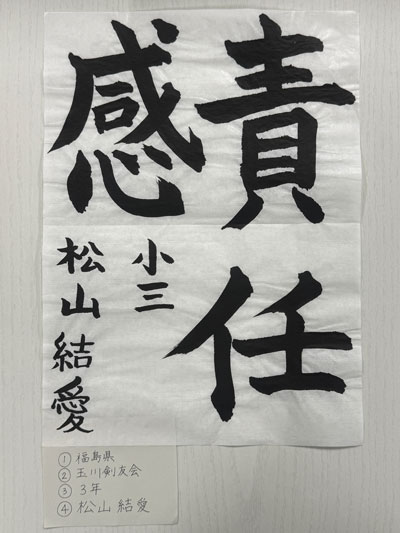 責任
感
小三
松山結愛
①福島県
②玉川剣友会
③3年
④松山結愛